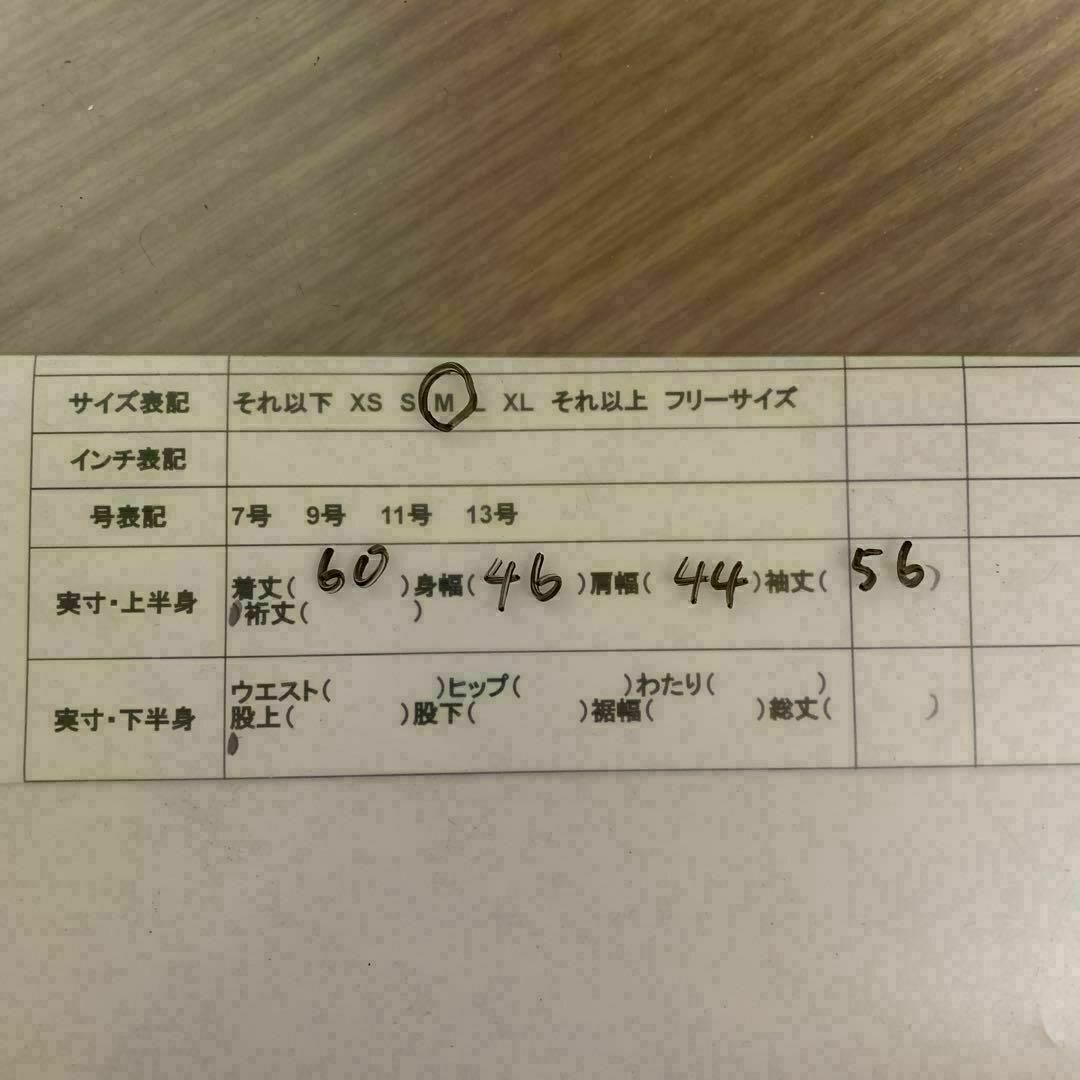 サイズ表記 それ以下 XS S M L XL それ以上 フリーサイズ
インチ表記
号表記 7号 9号 11号 13号
実寸・上半身
着丈( 60 )身幅( 46 )肩幅( 44 )袖丈( 56 )
裄丈( )
実寸・下半身
ウエスト( )ヒップ( )わたり( )
股上( )股下( )裾幅( )総丈( )